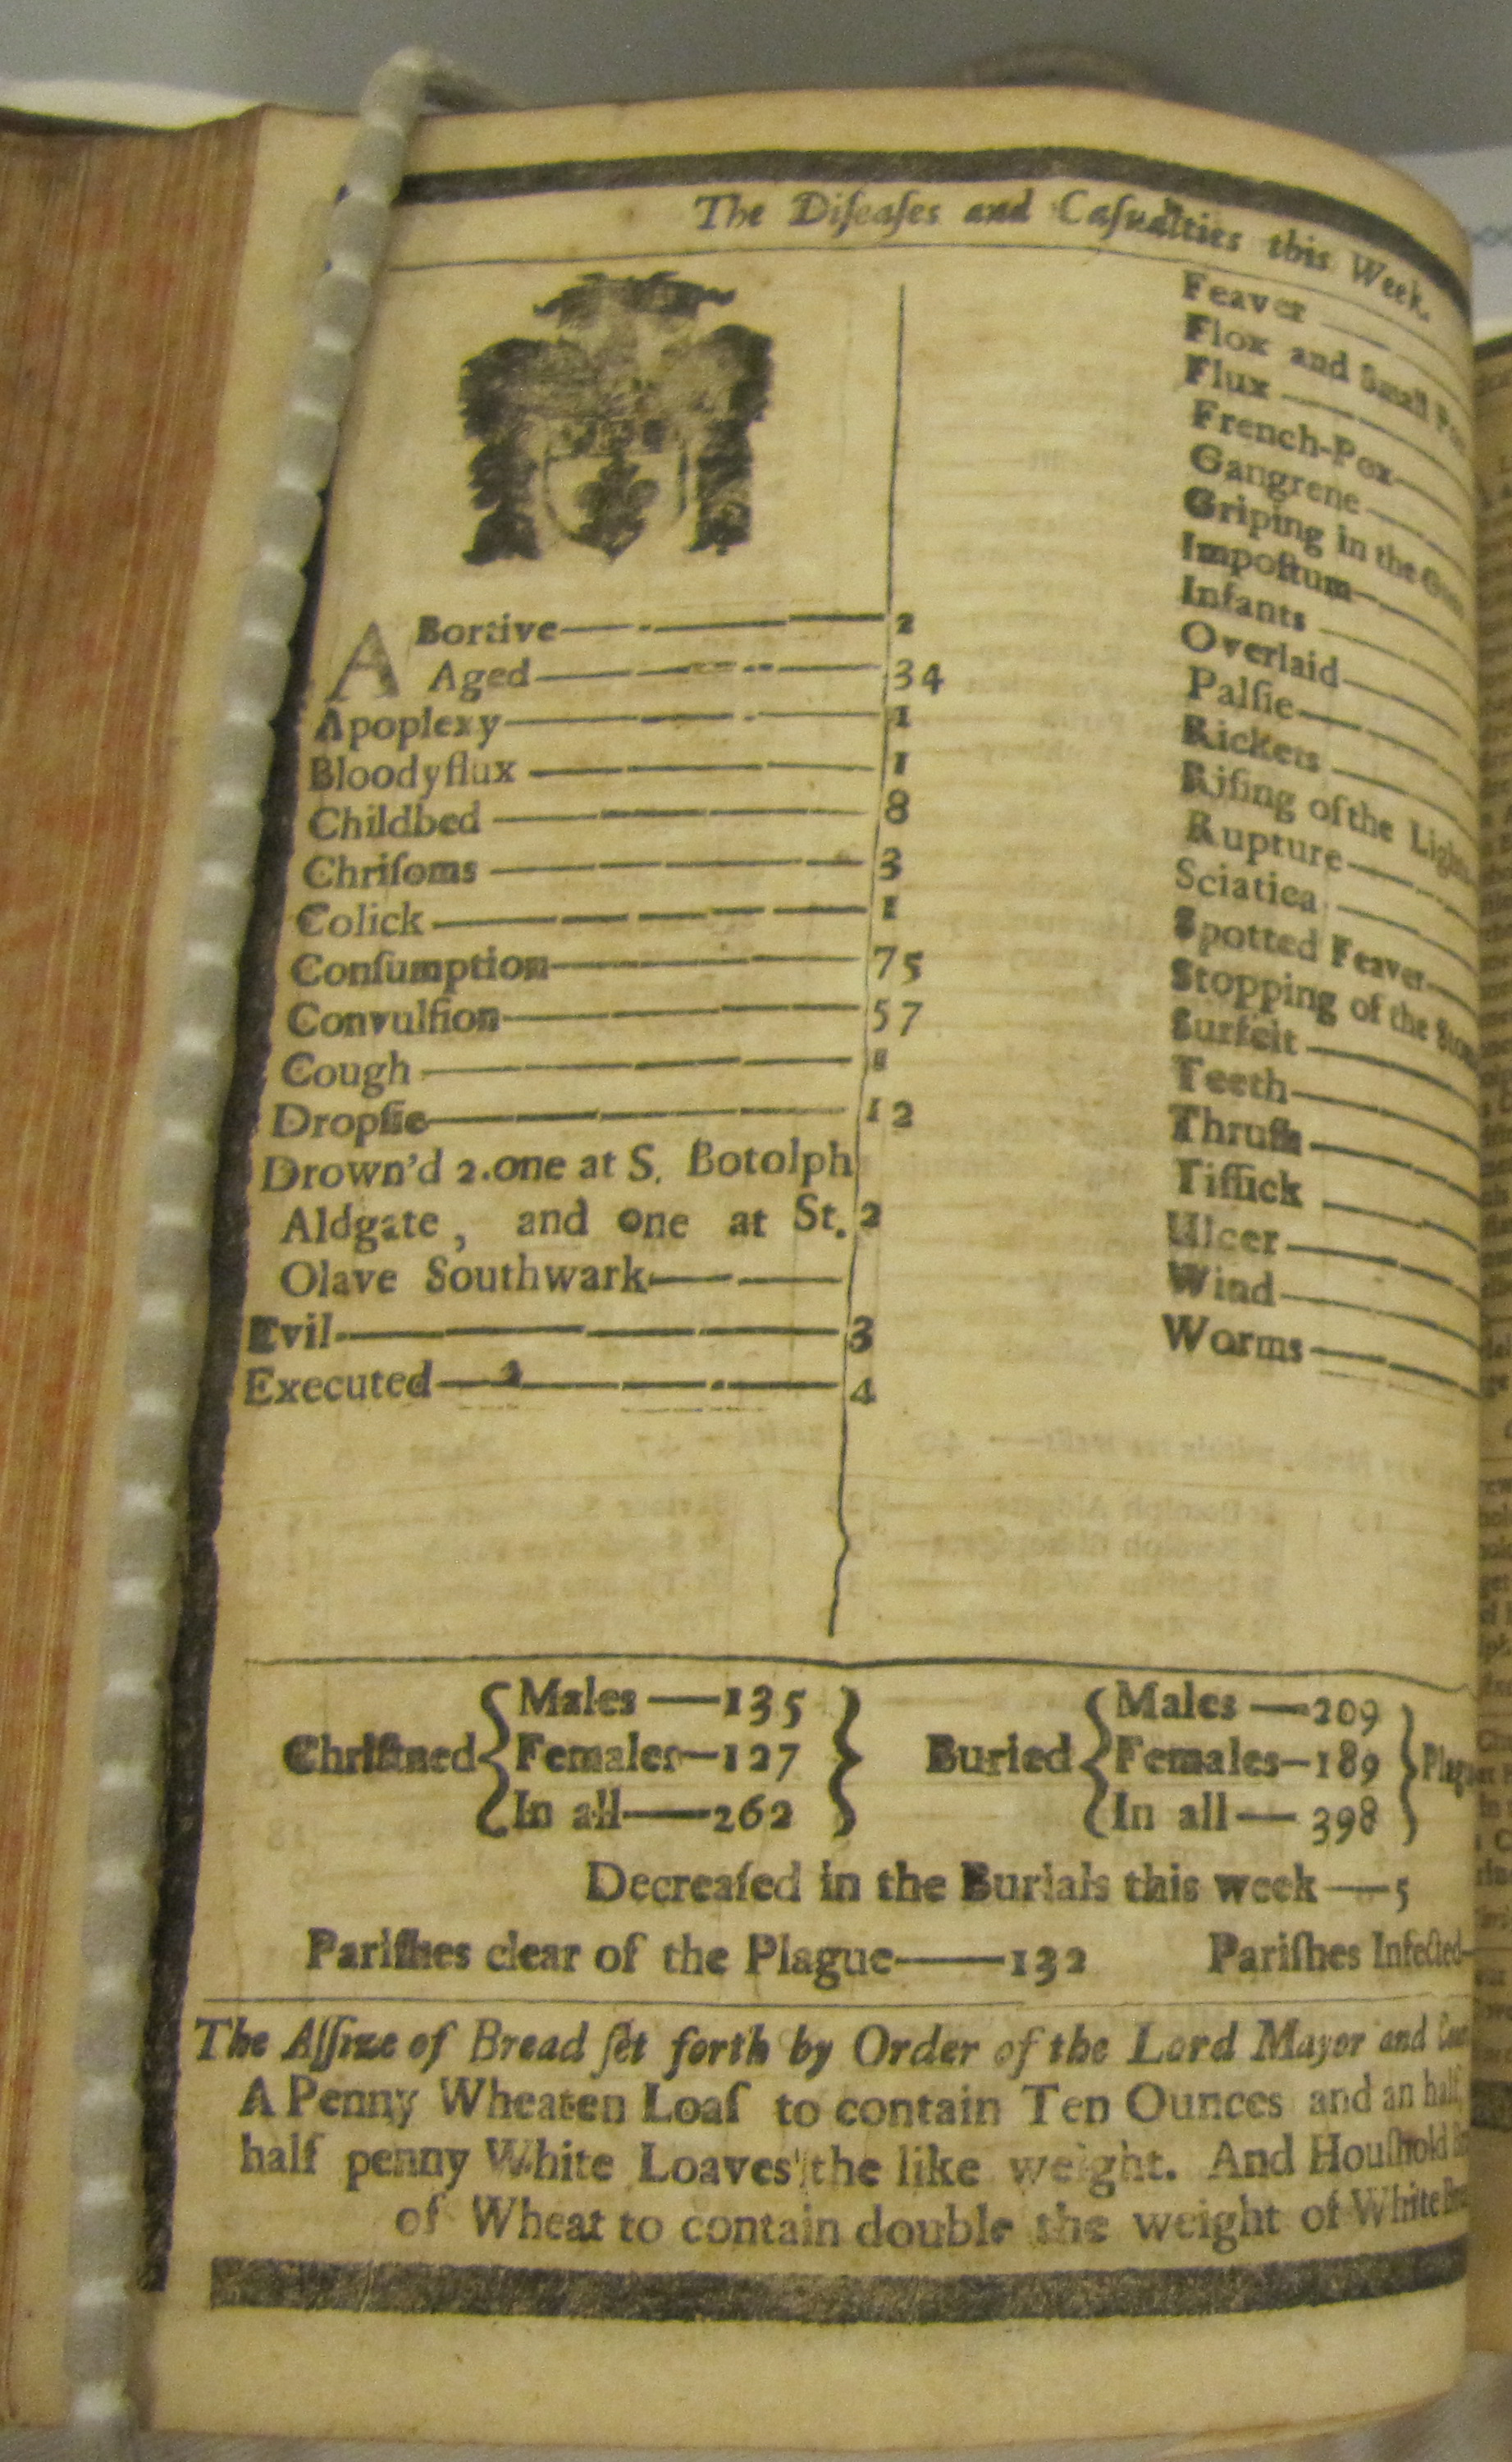 The Diſeaſes and Caſualties this Week.
ABortive 2
Aged 34
Apoplexy 1
Bloodyflux 1
Childbed 8
Chriſoms 3
Colick 1
Conſumption 75
Convulſion 57
Cough 1
Dropſie 12
Drown'd 2. one at S. Botolph
Aldgate, and one at St. 2
Olave Southwark
Evil 3
Executed 4
Feaver
Flox and Small
Flux
French-Pox
Gangrene
Griping in the
Impoſtum
Infants
Overlaid
Palſie
Rickets
Riſing of the
Rupture
Sciatica
Spotted Feaver
Stopping of the
Surfeit
Teeth
Thruſh
Tiſſick
Ulcer
Wind
Worms
Chriſtned { Males — 135 } Buried { Males — 209 }
Females — 127 Females — 189
In all — 262 In all — 398
Decreaſed in the Burials this week — 5
Pariſhes clear of the Plague — 132 Pariſhes Infected
The Aſſize of Bread ſet forth by Order of the Lord Mayor and
A Penny Wheaten Loaf to contain Ten Ounces and an half,
half penny White Loaves the like weight. And Houſhold
of Wheat to contain double the weight of White